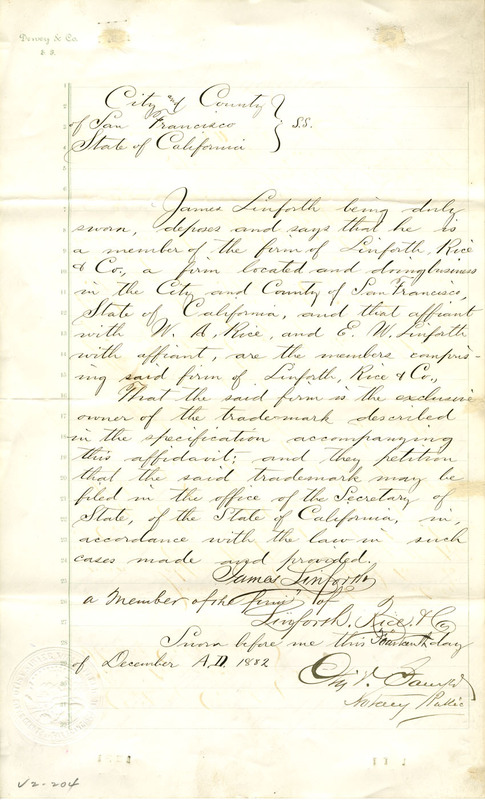 Dewey & Co.
S. F.
City and County
of San Francisco } S.S.
State of California
James Linforth being duly
sworn, deposes and says that he is
a member of the firm of Linforth, Rice
& Co., a firm located and doing business
in the City and County of San Francisco,
State of California, and that affiant
with W. A. Rice, and E. W. Linforth
with affiant, are the members compris-
ing said firm of Linforth, Rice & Co.,
That the said firm is the exclusive
owner of the trade-mark described
in the specification accompanying
this affidavit; and they petition
that the said trademark may be
filed in the office of the Secretary of
State, of the State of California, in,
accordance with the law in such
cases made and provided.
James Linforth
a Member of the "firm" of
Linforth, Rice & Co
Sworn before me this Fourteenth day
of December A.D. 1882
Notary Public
V2-204